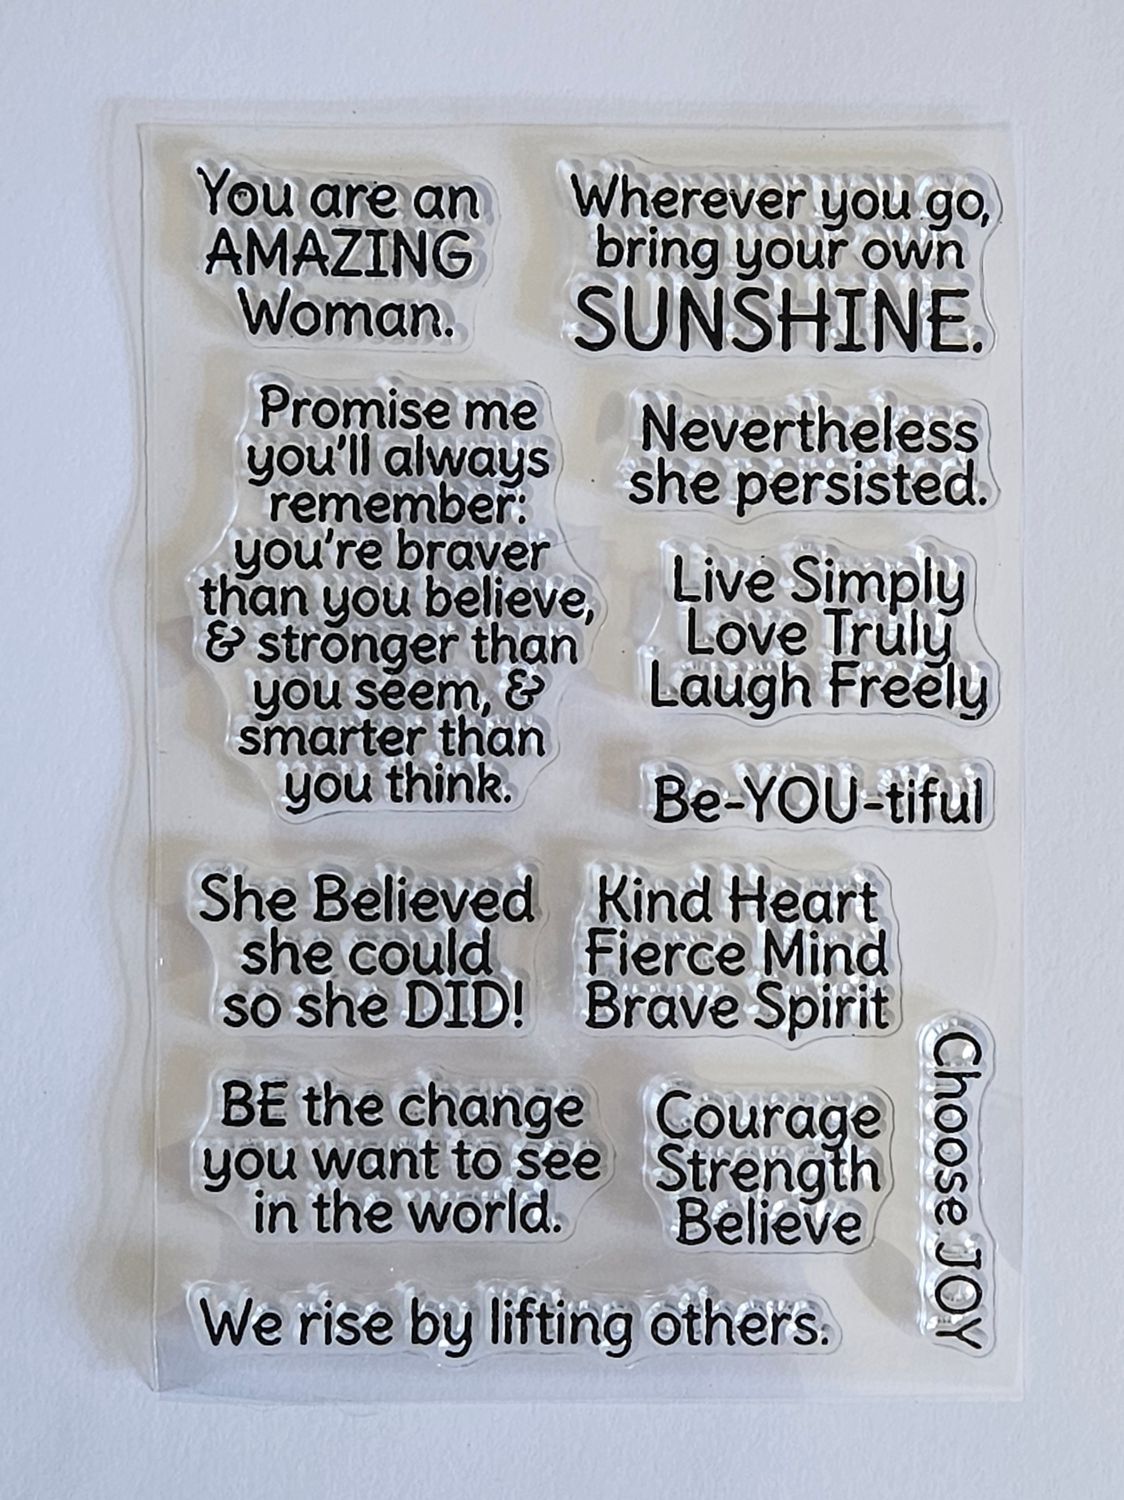 You are an
AMAZING
Woman.
Wherever you go,
bring your own
SUNSHINE.
Promise me
you'll always
remember:
you're braver
than you believe,
& stronger than
you seem, &
smarter than
you think.
Nevertheless
she persisted.
Live Simply
Love Truly
Laugh Freely
Be-YOU-tiful
She Believed
she could
so she DID!
Kind Heart
Fierce Mind
Brave Spirit
Choose JOY
BE the change
you want to see
in the world.
Courage
Strength
Believe
We rise by lifting others.